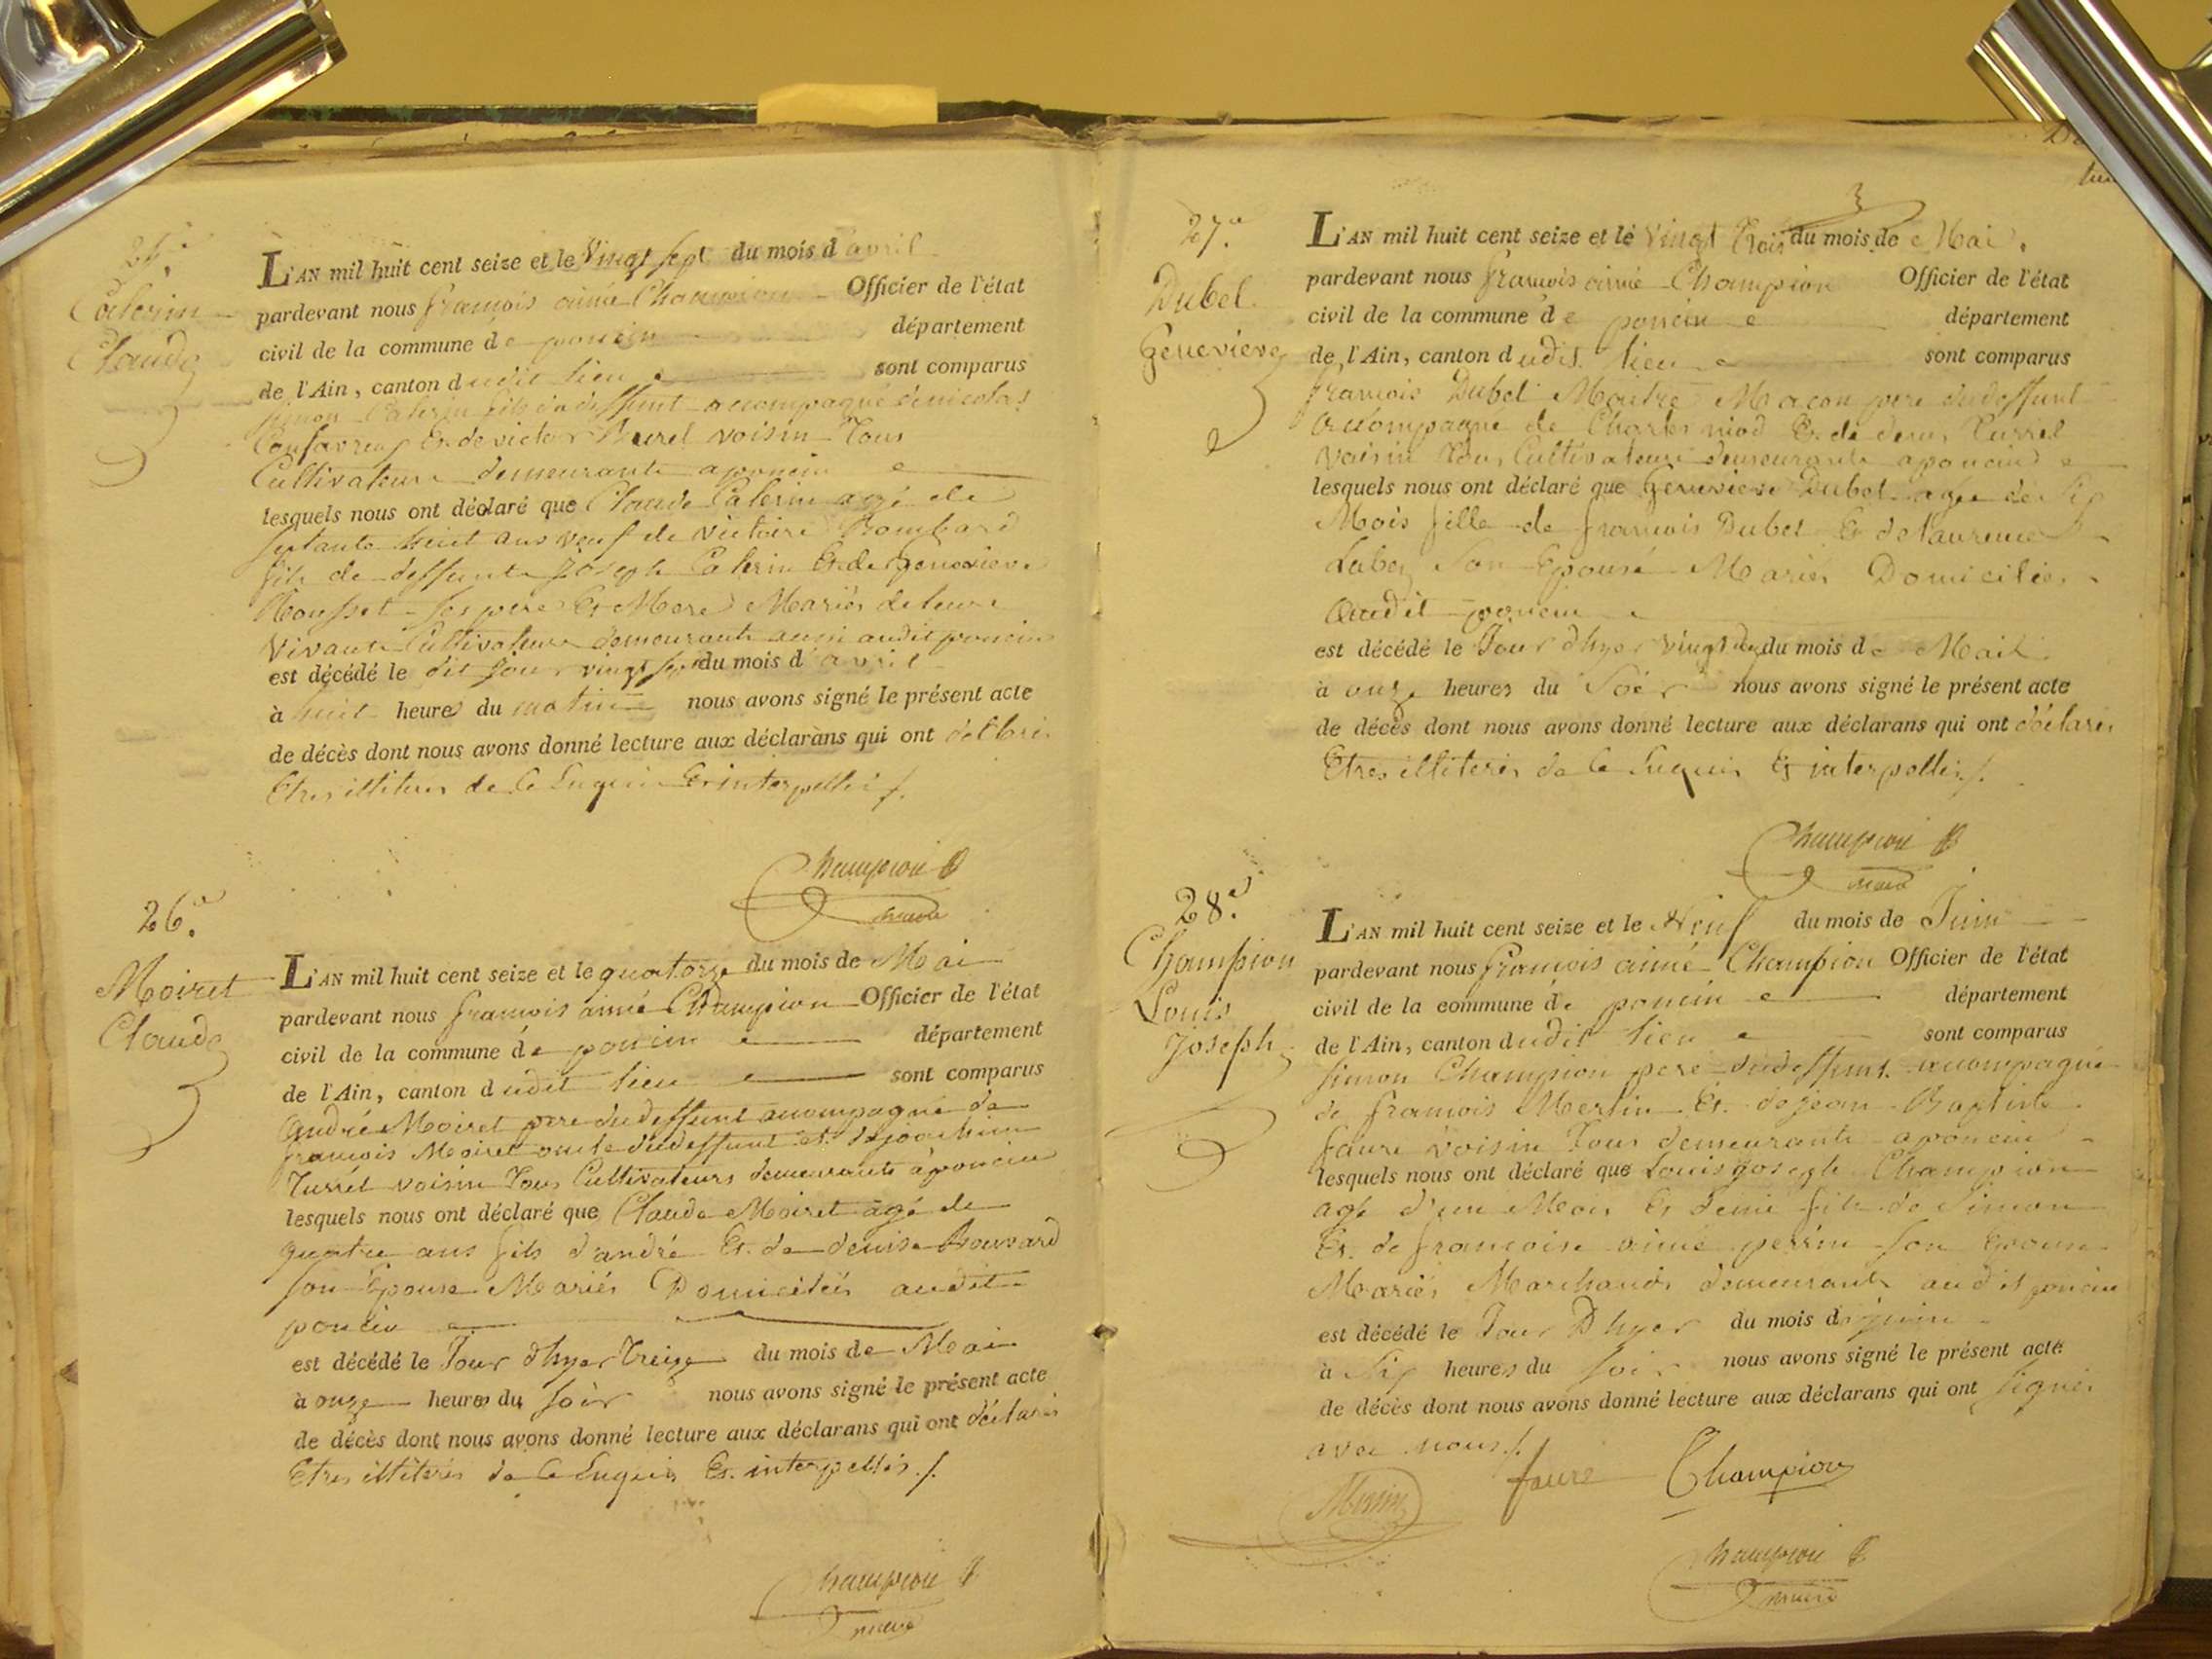 25.e
Caterin
Claude
L'AN mil huit cent seize et le Vingt sept du mois d'avril
pardevant nous françois aimé Champion Officier de l'état
civil de la commune de poncin département
de l'Ain, canton dudit lieu sont comparus
simon Caterin fils du deffunt accompagné de nicolas
Et de victor Burel voisin Tous
Cultivateurs demeurants a poncin
lesquels nous ont déclaré que Claude Caterin agé de
septante huit ans veuf de victoire
fils de deffunts joseph Caterin Et de genevieve
Rousset ses pere Et Mere Mariés de leurs
vivants Cultivateurs demeurants aussi audit poncin
est décédé le dit jour vingt sept du mois d'avril
à huit heures du matin nous avons signé le présent acte
de décès dont nous avons donné lecture aux déclarans qui ont déclarés
Etres illiteres de ce Enquis Et interpellés ./.
Champion
maire
26.e
Moiret
Claude
L'AN mil huit cent seize et le quatorze du mois de Mai
pardevant nous françois aimé Champion Officier de l'état
civil de la commune de poncin département
de l'Ain, canton dudit lieu sont comparus
andré Moiret pere du deffunt accompagné de
françois Moiret oncle du deffunt et de joachim
Turrel voisin Tous Cultivateurs demeurants à poncin
lesquels nous ont déclaré que Claude Moiret agé de
quatre ans fils d'andré Et de denise Bouvard
son Epouse Mariés Domiciliés audit
poncin
est décédé le Jour d'hyer Treize du mois de Mai
à onze heures du soir nous avons signé le présent acte
de décès dont nous avons donné lecture aux déclarans qui ont déclarés
Etres illiterés de ce Enquis Et interpellés ./.
Champion
maire
27.e
Dubel
Genevieve
L'AN mil huit cent seize et le Vingt Trois du mois de Mai
pardevant nous françois aimé Champion Officier de l'état
civil de la commune de poncin département
de l'Ain, canton dudit lieu sont comparus
françois Dubel Maitre Macon pere du deffunt
accompagné de Charles niod Et de denis Turrel
voisin Tous Cultivateurs demeurants a poncin
lesquels nous ont déclaré que Genevieve Dubel agée de Six
Mois fille de françois Dubel Et de laurence
Son Epouse Mariés Domiciliés
audit poncin
est décédé le Jour d'hyer vingt deux du mois de Mai
à onze heures du Soir nous avons signé le présent acte
de décès dont nous avons donné lecture aux déclarans qui ont déclarés
Etres illiterés de ce Enquis Et interpellés ./.
Champion
maire
28.e
Champion
Louis
Joseph
L'AN mil huit cent seize et le Neuf du mois de Juin
pardevant nous françois aimé Champion Officier de l'état
civil de la commune de poncin département
de l'Ain, canton dudit lieu sont comparus
simon Champion pere du deffunt accompagné
de françois Merlin Et de jean Baptiste
faure voisin Tous demeurants a poncin
lesquels nous ont déclaré que Louis joseph Champion
agé d'un Mois Et demi fils de Simon
Et de françoise aimé perrin son Epouse
Mariés Marchands demeurants audit poncin
est décédé le Jour D'hyer du mois de juin
à Six heures du soir nous avons signé le présent acte
de décès dont nous avons donné lecture aux déclarans qui ont signés
avec nous ./.
Merlin faure Champion
Champion
maire